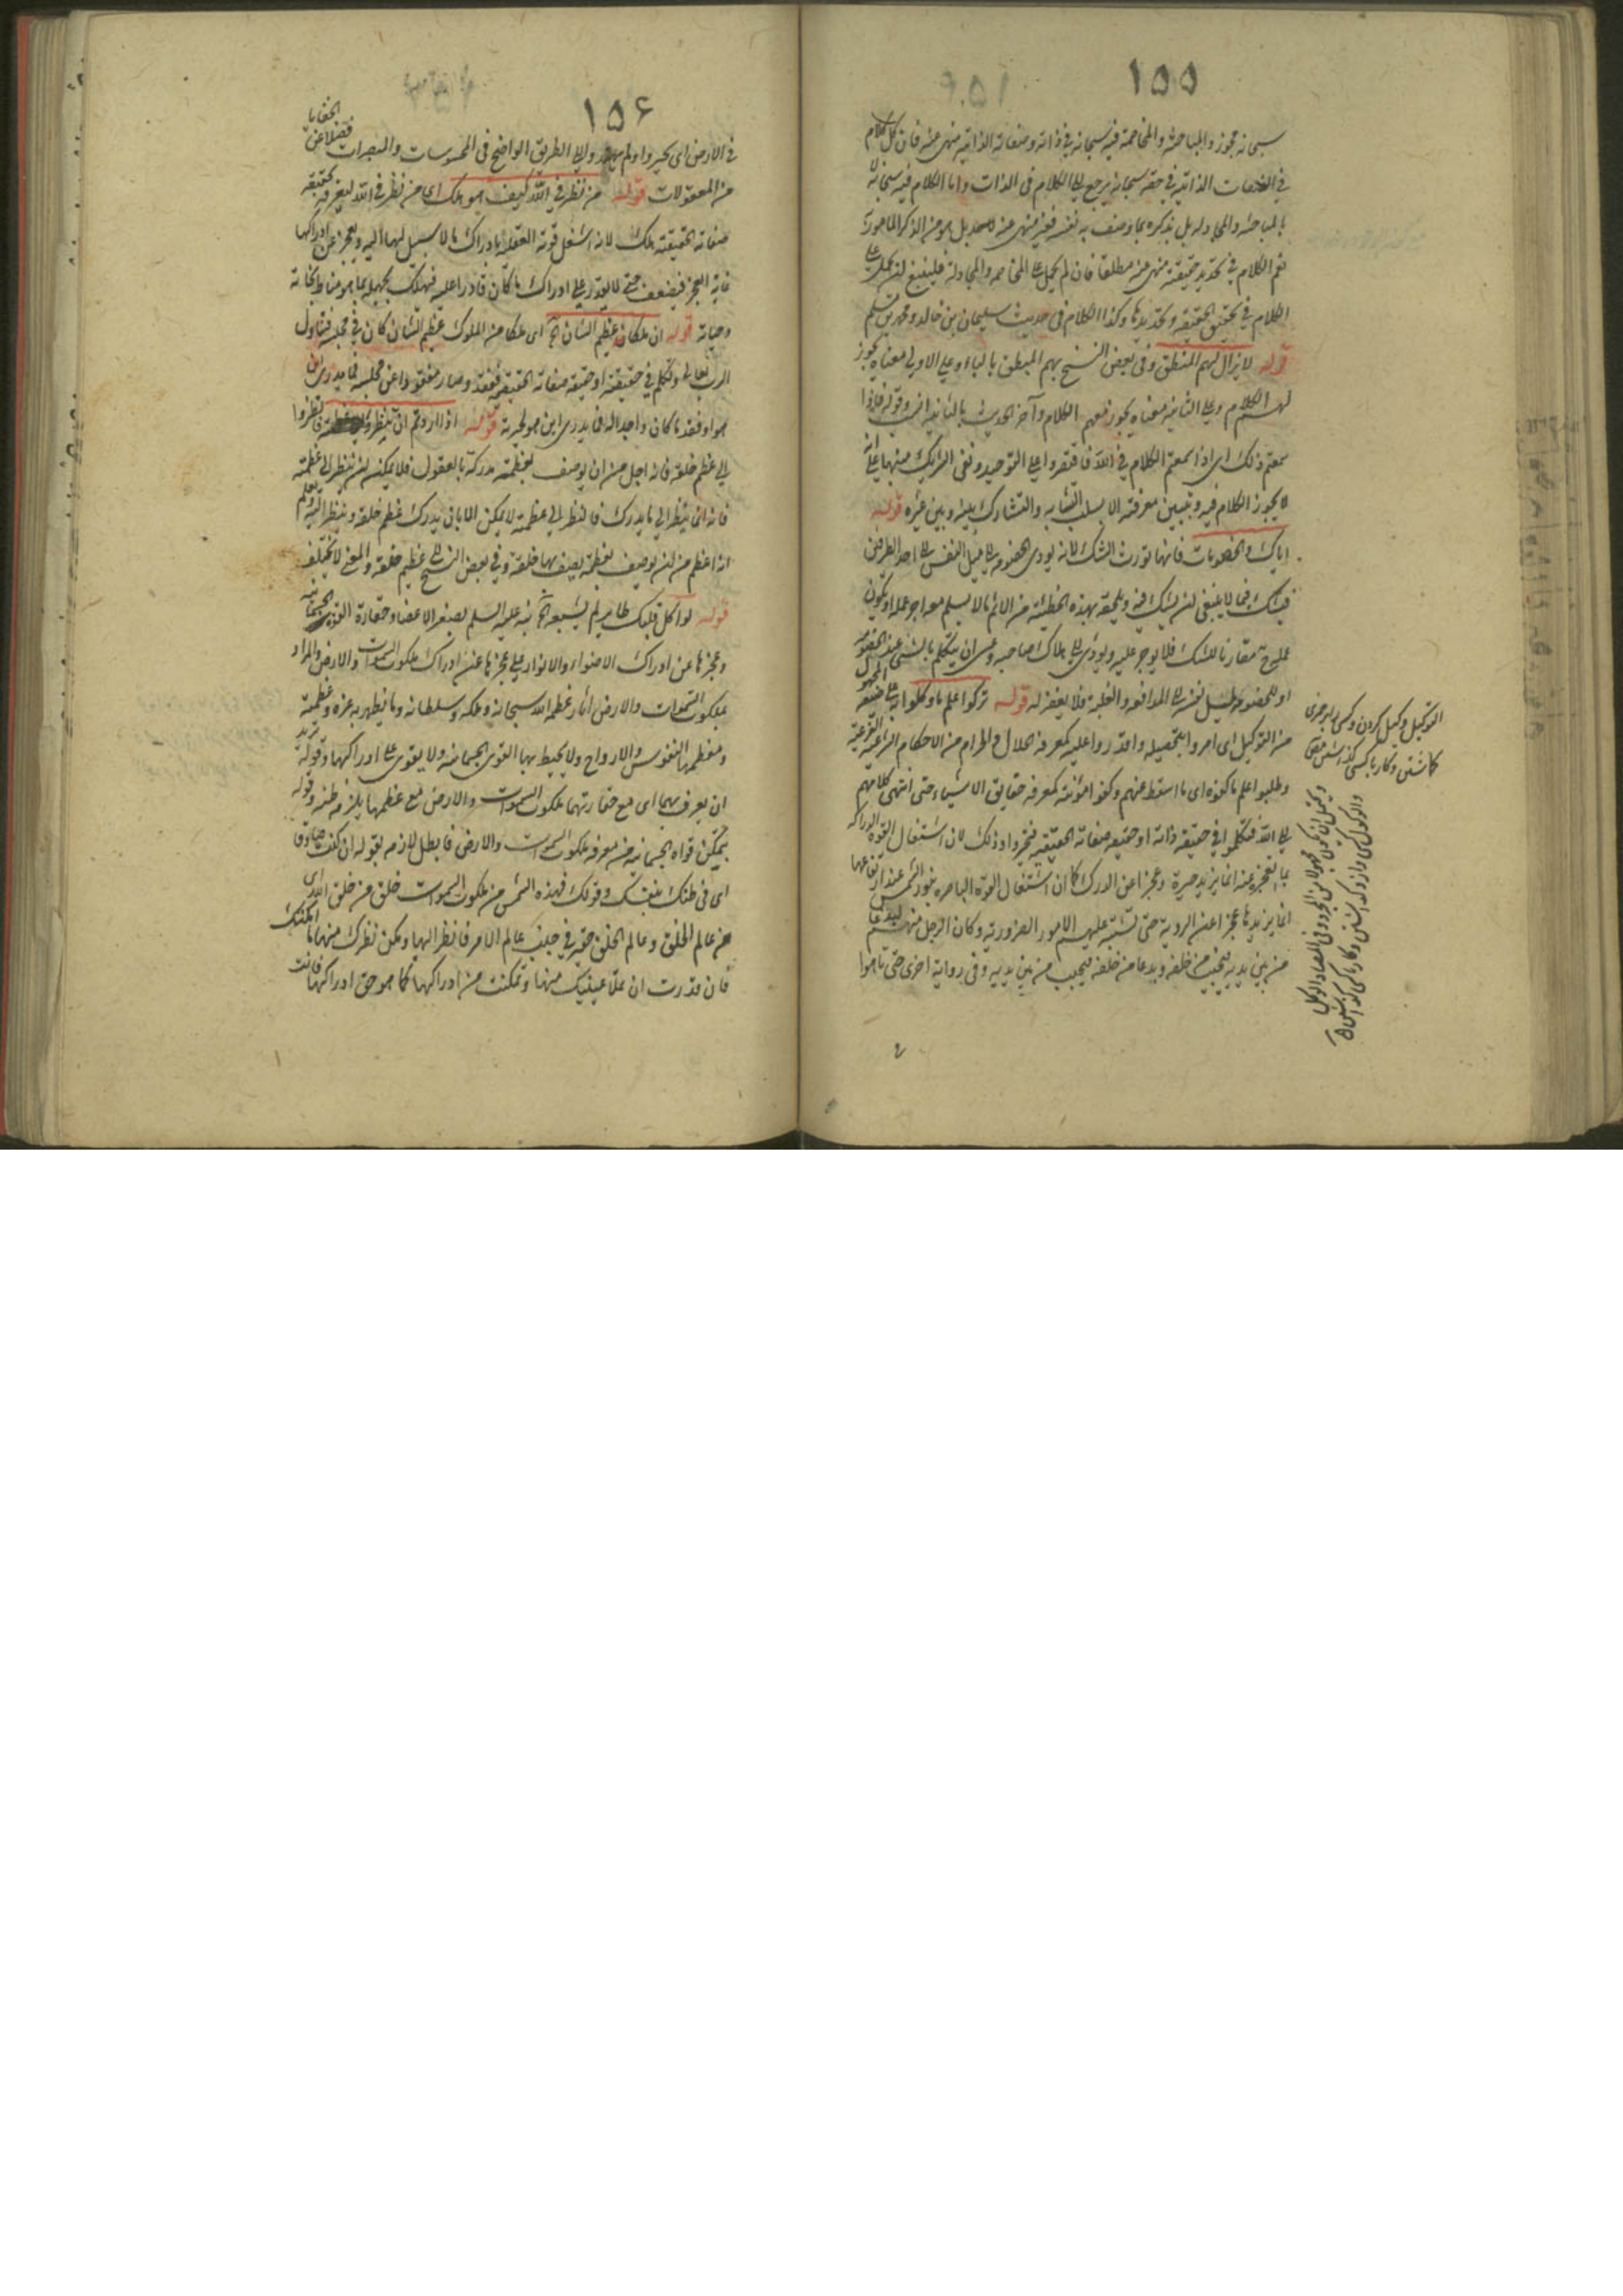 ١٥٥
سبحانه مجوز والمباحثة والمخاصمة فيه سبحانه في ذاته وصفاته الذاتية منهى عنه فان كل كلام
في الصفات الذاتية في حقه سبحانه يرجع الى الكلام في الذات واما الكلام فيه سبحانه لا
بالمباحثة والمجادلة بل بذكره بما وصف به نفسه فغير منهى عنه لاحد بل هو من الذكر المأمور به
نعم الكلام في تحديد حقيقته منهى عنه مطلقا فان لم يحمل على المخاصمة والمجادلة فلينبغ لن يحمل على
الكلام في تحقيق الحقيقة وتحديدها وكذا الكلام في حديث سليمان بن خالد ومحمد بن مسلم
قوله لا يزال بهم المنطق وفى بعض النسخ بهم المنطق بالباء وعلى الاولى معناه يجوز
لهم الكلام وعلى الثانية معناه يجوز معهم الكلام وآخر الحديث بالثانية انسب وقوله فاذا
سمعتم ذلك اى اذا سمعتم الكلام في الله فاقتصروا على التوحيد ونفى الشريك منبها على انه
لا يجوز الكلام فيه وتبيين معرفته الا بسلب التشابه والتشارك بينه وبين غيره قوله
اياك والخصومات فانها تورث الشك لانه يودى الخصومة الى ميل النفس الى احد الطرفين
فيشك فيما لا ينبغى لن يشك فيه ويلحقه بهذه الخطيئة من الاثم ما لا يسلم معه اجر عمله او يكون
عمله ح مقارنا للشك فلا يوجر عليه ويودى الى هلاك صاحبه وعسى ان يتكلم بالشئ عند الخصومة
او للخصومة لميل نفسه الى المدافعة والغلبة فلا يغفر له قوله تركوا علم ما وكلوا به على صيغة المجهول
من التوكيل اى امروا بتحصيله واقدروا عليه كمعرفة الحلال والحرام من الاحكام الشرعية الفرعية
وطلبوا علم ما كفوه اى ما اسقط عنهم وكفوا مؤنته كمعرفة حقايق الاشياء حتى انتهى كلامهم
الى الله فتكلموا في حقيقة ذاته او حقيقة صفاته الحقيقية فتحيروا وذلك لان اشتغال القوة الدراكة
بما تعجز عنه انما يزيد حيرة وعجزا عن الدرك كما ان اشتغال القوة الباصرة بنور الشمس عند ارتفاعها
انما يزيدها عجزا عن الروية حتى تشتبه عليهم الامور الضرورية وكان الرجل منهم ليدعا
من بين يديه فيجيب من خلفه ويدعا من خلفه فيجيب من بين يديه وفى رواية اخرى حتى تاهوا
التوكيل وكيل كردن وكسى را بر چيزى
كاشتن وكار با كسى گذاشتن
١٥۶
في الارض اى تحيروا ولم يهتدوا الى الطريق الواضح في المحسوسات والمبصرات فضلا عن الخفايا
من المعقولات قوله من نظر في الله كيف هو هلك اى من نظر في الله ليعرفه حقيقة
صفاته الحقيقية هلك لانه اشغل قوته العقلية بادراك ما لا سبيل لها اليه ويعجز عن ادراكها
غاية العجز فيضعف حتى لا يقدر على ادراك ما كان قادرا عليه فيهلك بجهله بما هو مناط نجاته
وحياته قوله ان ملكا عظيم الشان الخ اى ملكا من الملوك عظيم الشان كان في مجلسه فتناول
الرب تعالى وتكلم في حقيقته او حقيقة صفاته الحقيقية ففقد وصار مفقودا عن مجلسه فما يدرى اين
هو او فقد ما كان واجدا له فما يدرى اين هو لحيرته قوله اذا اردتم ان تنظروا الى عظمته فانظروا
الى عظم خلقه فانه اجل من ان يوصف بعظمته مدركة بالعقول فلا يمكنه لن ينظر الى عظمته
فانه انما ينظر الى ما يدرك فالنظر الى عظمته لا يمكن الا بان يدرك عظم خلقه وينظر اليه ويعلم
انه اعظم من لن يوصف بعظمة يصف بها خلقه وفي بعض النسخ الى عظيم خلقه والمعنى لا يختلف
قوله لو اكل قلبك طاير لم يشبعه الخ نبه عليه السلم بصغر الاعضا وحقارة القوى الجسمانية
وعجزها عن ادراك الاضواء والانوار على عجزها عن ادراك ملكوت السموات والارض والمراد
بملكوت السموات والارض اثار عظمة الله سبحانه وملكه وسلطانه وما يظهر به عزه وعظمته
ومعظمها النفوس والارواح ولا يحيط بها القوى الجسمانية ولا يقوى على ادراكها وقوله تريد
ان يعرف بهما اى مع حقارتهما ملكوت السموات والارض مع عظمها يلزم ظنه وقوله
بتمكين قواه الجسمانية من معرفة ملكوت السموات والارض فابطل لازمه بقوله ان كنت صادقا
اى في ظنك بنفسك وقولك فهذه الشمس من ملكوت السموات خلق من خلق الله اى
من عالم الخلق وعالم الخلق حقير في جنب عالم الامر فانظر اليها ومكن نظرك منها ما امكنك
فان قدرت ان تملأ عينيك منها وتمكنت من ادراكها كما هو حق ادراكها فانت